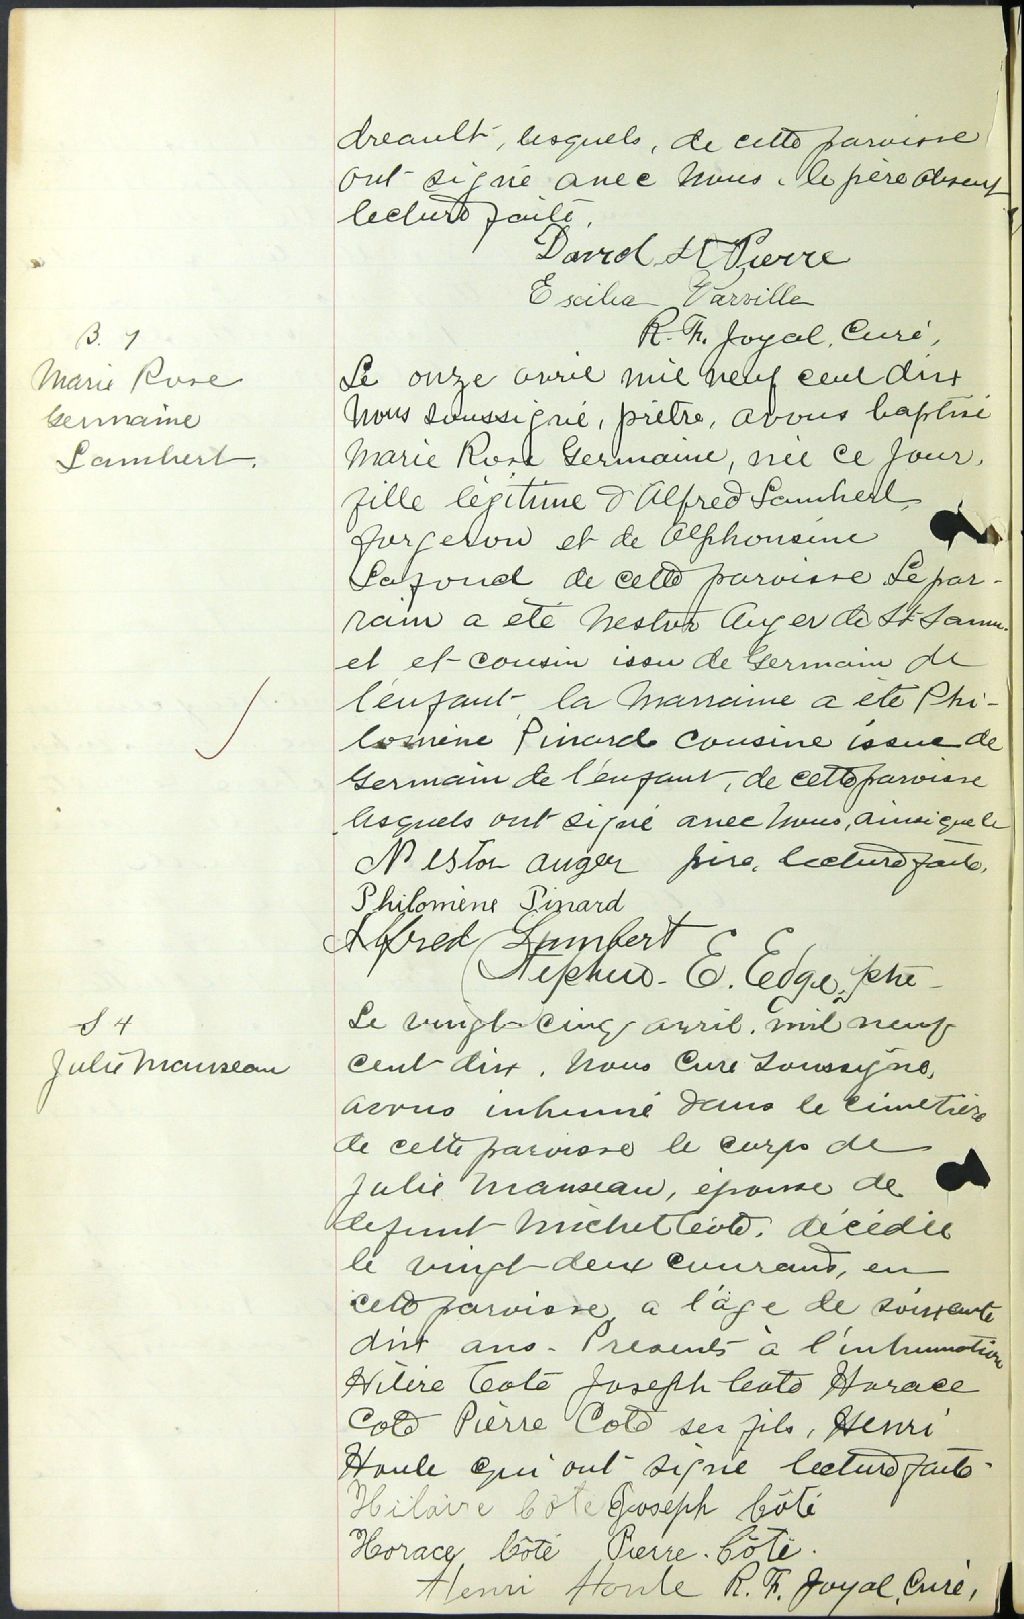 dreault, lesquels, de cette paroisse
ont signé avec nous. le père absent
lecture faite.
David St Pierre
Exilia Parville
R. F. Joyal, Curé,
B. 7
Marie Rose
Germaine
Lambert.
Le onze avril mil neuf cent dix
Nous soussigné, prêtre, avons baptisé
Marie Rose Germaine, née ce jour,
fille légitime d'Alfred Lambert,
forgeron et de Alphonsine
Lafond de cette paroisse. Le par-
rain a été Nestor Auger de St Samu-
el et cousin issu de Germain de
l'enfant, la Marraine a été Phi-
lomène Pinard cousine issue de
Germain de l'enfant, de cette paroisse
lesquels ont signé avec nous, ainsi que le
père, lecture faite.
Nestor Auger
Philomène Pinard
Alfred Lambert
E. Edge, ptre
S 4
Julie Manseau
Le vingt-cinq avril, mil neuf
cent dix, Nous Curé soussigné,
avons inhumé dans le cimetière
de cette paroisse le corps de
Julie Manseau, épouse de
defunt Michel Coté, décédée
le vingt-deux courant, en
cette paroisse, a l'âge de soixante
dix ans. Presents à l'inhumation
Hilère Coté Joseph Coté Horace
Coté Pièrre Coté ses fils, Henri
Houle qui ont signé lecture faite
Hilaire Côté Joseph Côté
Horace Côté Pierre Côté.
Henri Houle R. F. Joyal, Curé,